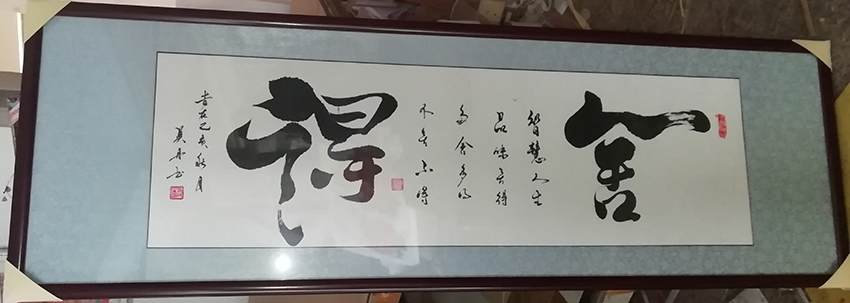 舍
智慧人生
品味舍得
多舍多得
不舍不得
得
岁在己亥秋月
书